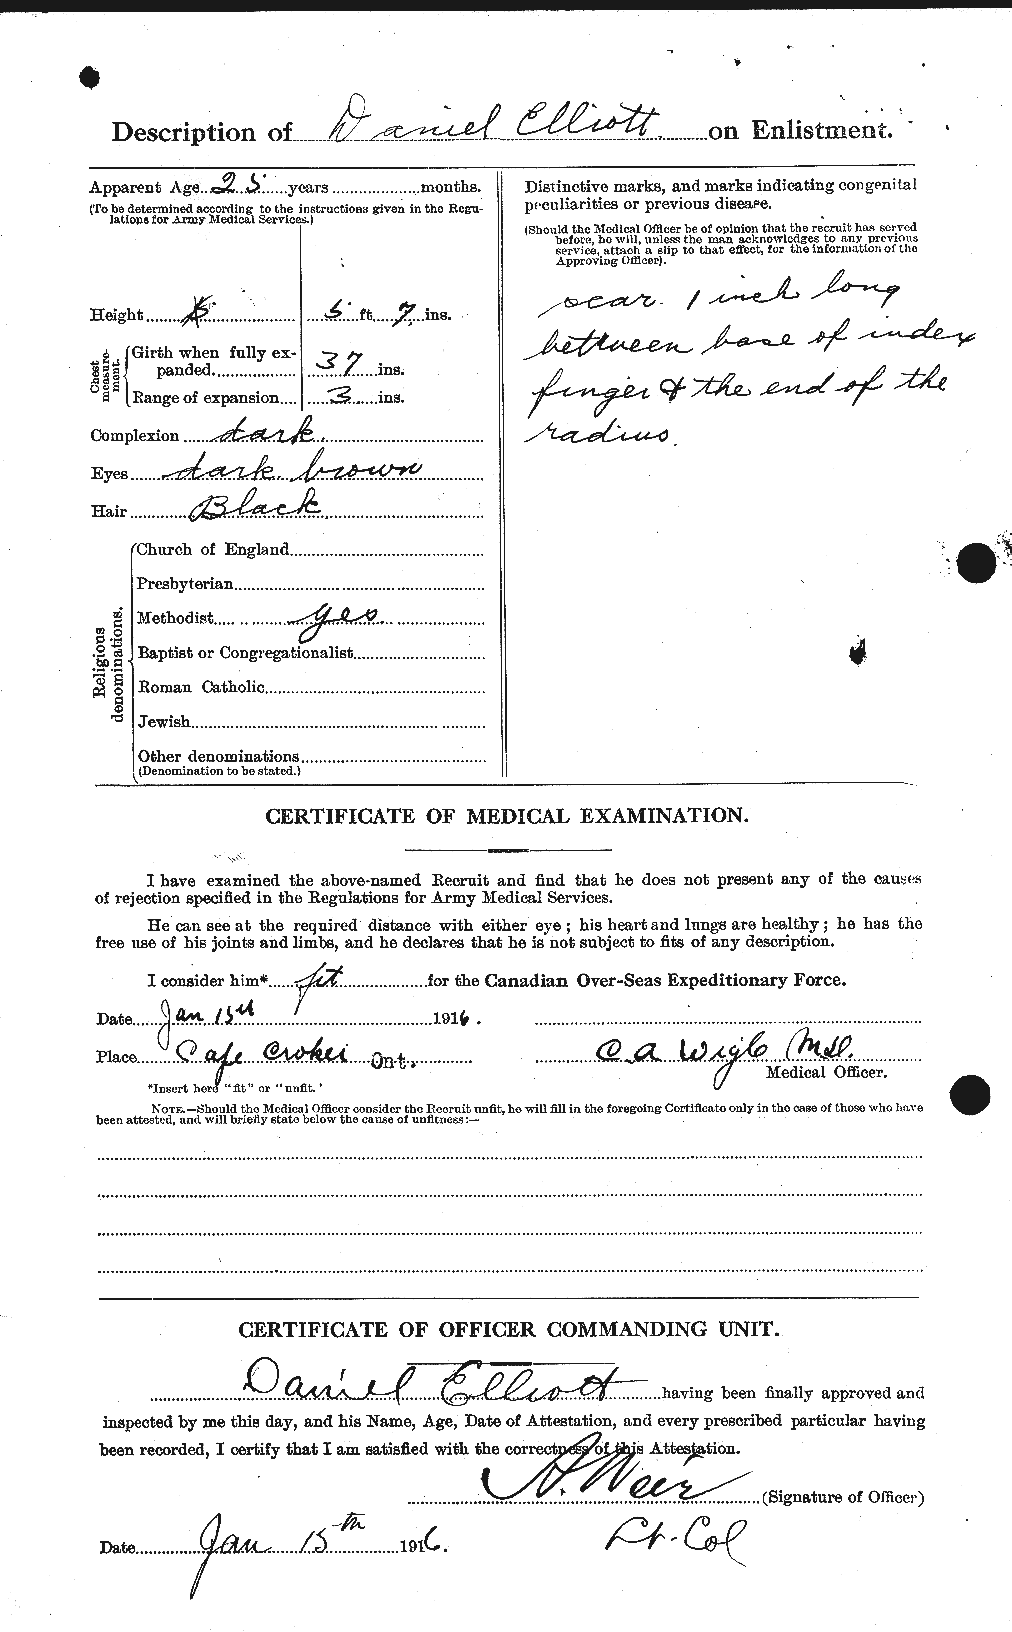 Description of Daniel Elliott on Enlistment.
Apparent Age 25 years months.
(To be determined according to the instructions given in the Regu-
lations for Army Medical Services.)
Height 5 ft. 7 ins.
Chest measure-ment.
Girth when fully ex-
panded 37 ins.
Range of expansion 3 ins.
Complexion dark
Eyes dark brown
Hair Black
Religious denominations.
Church of England
Presbyterian
Methodist yes
Baptist or Congregationalist
Roman Catholic
Jewish
Other denominations
(Denomination to be stated.)
Distinctive marks, and marks indicating congenital
peculiarities or previous disease.
(Should the Medical Officer be of opinion that the recruit has served
before, he will, unless the man acknowledges to any previous
service, attach a slip to that effect, for the information of the
Approving Officer).
scar 1 inch long
between base of index
finger & the end of the
radius.
CERTIFICATE OF MEDICAL EXAMINATION.
I have examined the above-named Recruit and find that he does not present any of the causes
of rejection specified in the Regulations for Army Medical Services.
He can see at the required distance with either eye; his heart and lungs are healthy; he has the
free use of his joints and limbs, and he declares that he is not subject to fits of any description.
I consider him* fit for the Canadian Over-Seas Expeditionary Force.
Date Jan 15th 1916.
Place Cape Croker Ont.
C A Wigle M.D.
Medical Officer.
*Insert here "fit" or "unfit."
NOTE.—Should the Medical Officer consider the Recruit unfit, he will fill in the foregoing Certificate only in the case of those who have
been attested, and will briefly state below the cause of unfitness:—
CERTIFICATE OF OFFICER COMMANDING UNIT.
Daniel Elliott having been finally approved and
inspected by me this day, and his Name, Age, Date of Attestation, and every prescribed particular having
been recorded, I certify that I am satisfied with the correctness of this Attestation.
A. Weir (Signature of Officer)
Lt-Col
Date Jan 15th 1916.